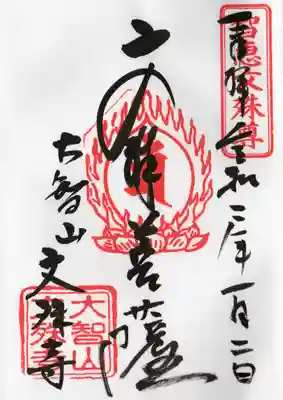 智恵文殊尊
奉拝 令和三年一月二日
文殊菩薩
大智山
文殊寺
大智山
文殊寺